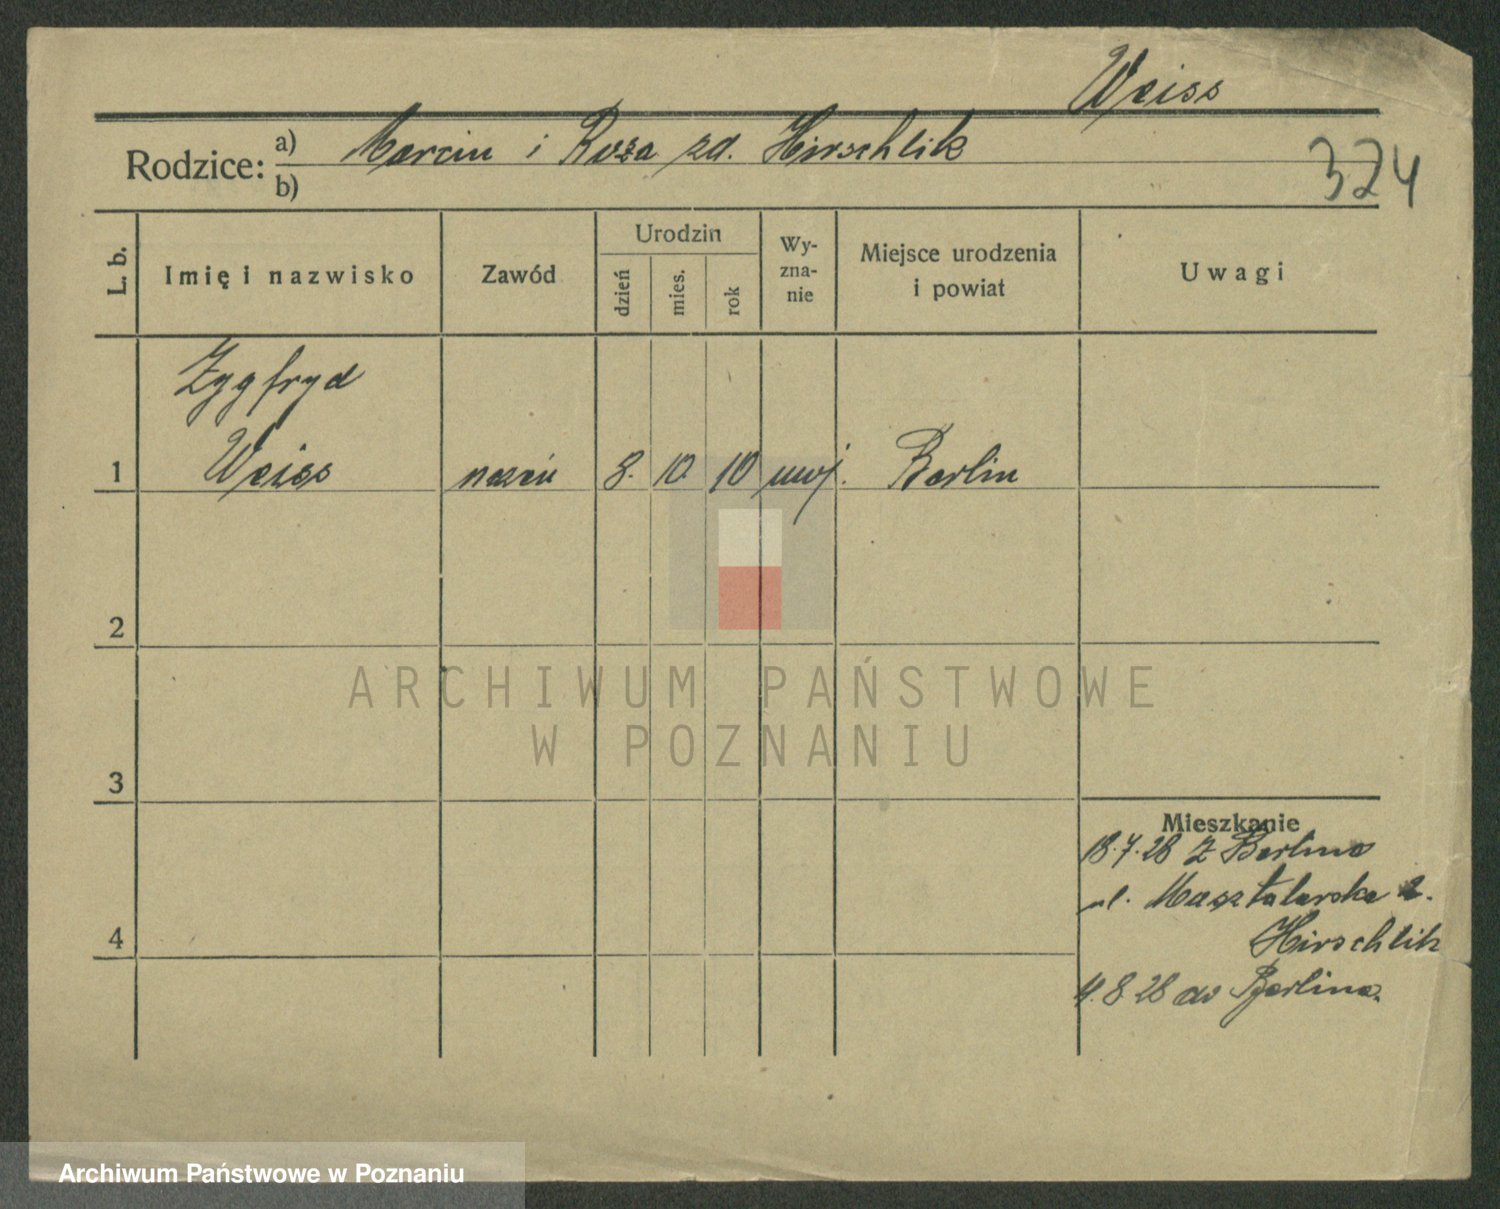 Weiss
Rodzice: a) Marcin i Róża zd. Hirschlik
b)
324
L. b.
Imię i nazwisko
Zawód
Urodzin
dzień
mies.
rok
Wy-
zna-
nie
Miejsce urodzenia
i powiat
Uwagi
Zygfryd
1 Weiss uczeń 8. 10. 10 mojż. Berlin
2
3
4
Mieszkanie
18.7.28 z Berlina
ul. Masztalarska 2.
Hirschlik
4.8.28 do Berlina.
ARCHIWUM PAŃSTWOWE
W POZNANIU
Archiwum Państwowe w Poznaniu